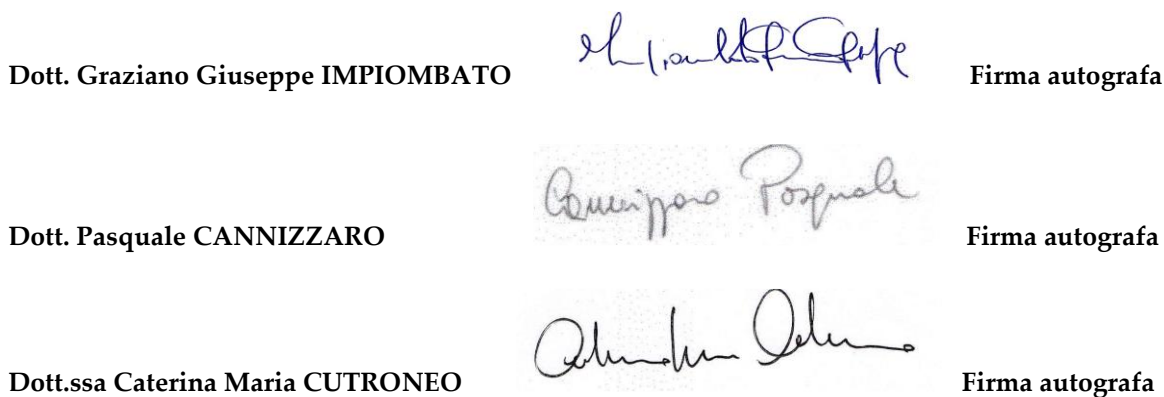 Dott. Graziano Giuseppe IMPIOMBATO Firma autografa
Dott. Pasquale CANNIZZARO Cannizzaro Pasquale Firma autografa
Dott.ssa Caterina Maria CUTRONEO Firma autografa